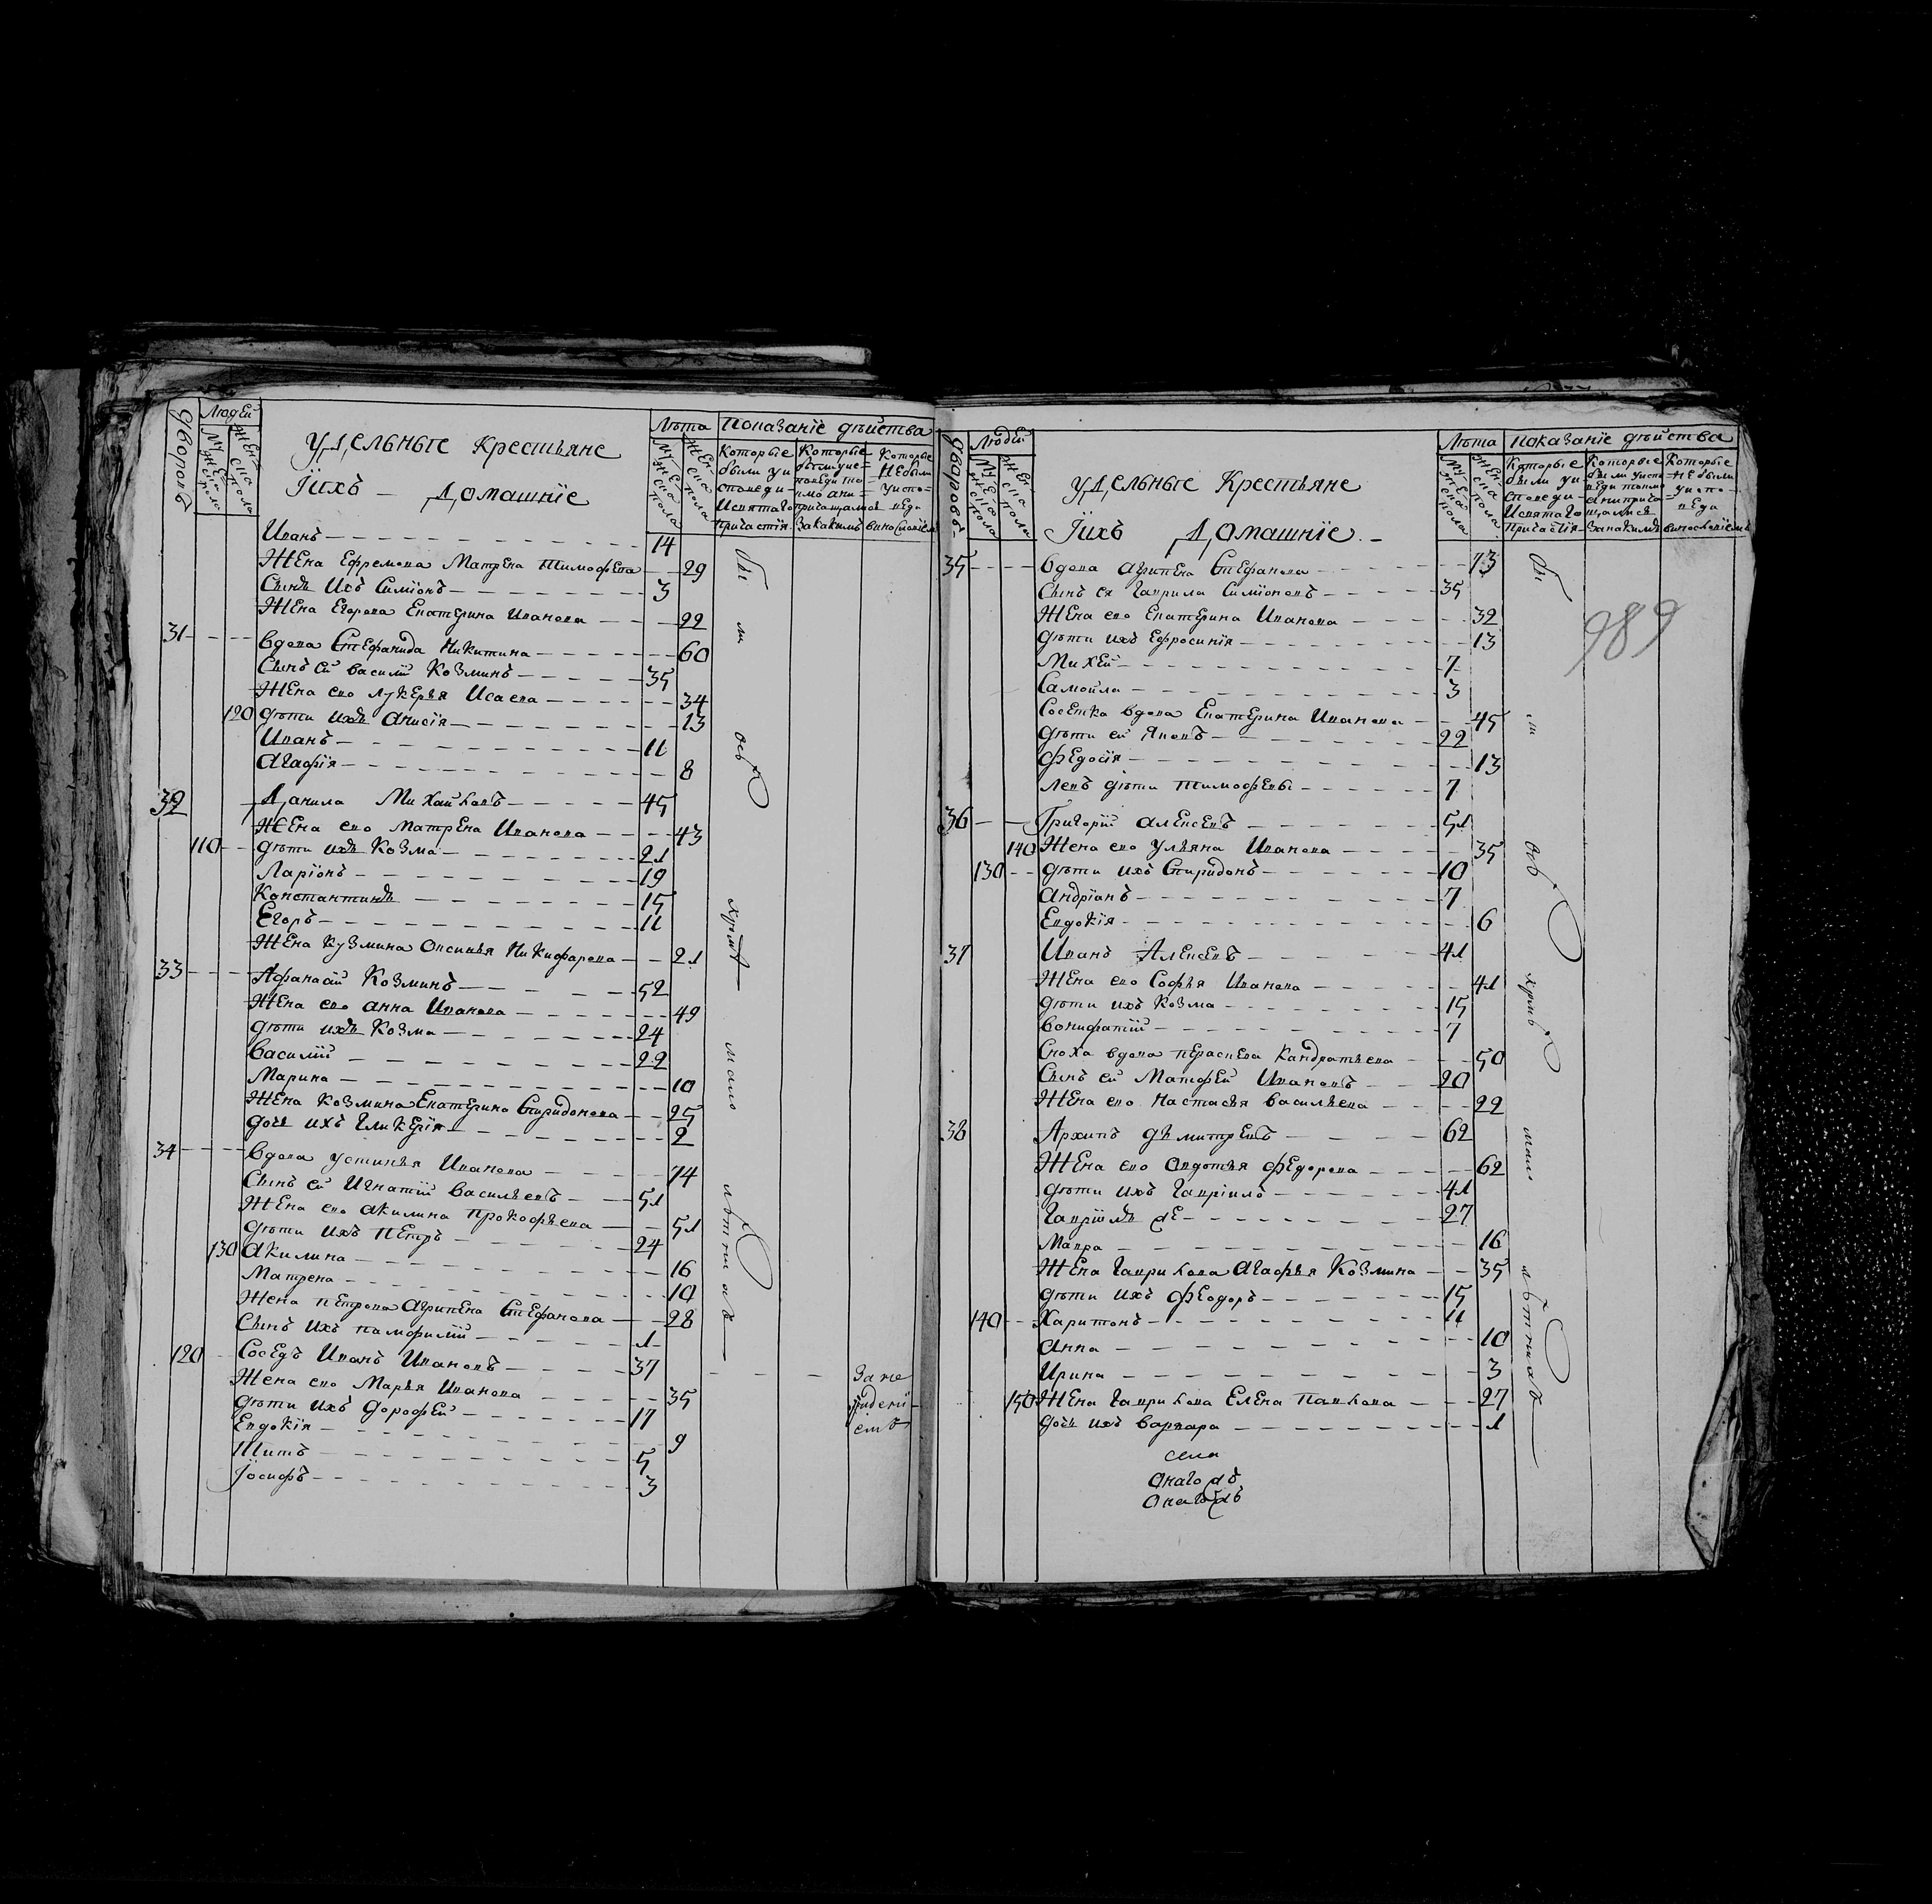 дворовъ
Людей
Мужеска пола
Женска пола
Удельные Крестьяне
Іихъ — Домашніе
Лѣта
Мужеска пола
Женска пола
Показаніе дѣйства
Которые были у исповеди и святаго причастія
Которые
Которые не были у исповеди
Иванъ 14
Жена Ефремова Матрена Тимофева 29
Сынъ Ихъ Симіонъ 3
Жена Егорова Екатерина Иванова 22
31 Вдова Стефанида Никитина 60
Сынъ ей Василій Козминъ 35
Жена ево Лукерья Исаева 34
120 Дѣти ихъ Анисія 13
Иванъ 11
Агафія 8
32 Данила Михайловъ 45
Жена ево Матрена Иванова 43
110 Дѣти ихъ Козма 21
Ларіонъ 19
Константинъ 15
Егоръ 11
Жена Кузмина Оксинья Никифарова 21
33 Афанасій Козминъ 52
Жена ево Анна Иванова 49
Дѣти ихъ Козма 24
Василій 22
Марина 10
Жена Козмина Екатерина Спиридонова 25
Дочь ихъ Гликерія 2
34 Вдова Устинья Иванова 74
Сынъ ей Игнатій Васильевъ 51
Жена ево Акилина Прокофьева 51
Дѣти ихъ Петръ 24
130 Акилина 16
Матрена 10
Жена Петрова Агрипена Стефанова 28
Сынъ ихъ Памфилій 1
120 Соседъ Иванъ Ивановъ 37
Жена ево Марья Иванова 35
Дѣти ихъ Дорофей 17
Евдокія 9
Титъ 5
Іосифъ 3
дворовъ
Людей
Мужеска пола
Женска пола
Удельные Крестьяне
Іихъ Домашніе
Лѣта
Мужеска пола
Женска пола
Показаніе дѣйства
Которые были у исповеди и святаго причастія
Которые
Которые не были у исповеди
989
35 Вдова Агрипена Стефанова 73
Сынъ ея Гаврила Симіоновъ 35
Жена ево Екатерина Иванова 32
Дѣти ихъ Ефросинія 13
Михей 7
Самойла 3
Соседка вдова Екатерина Иванова 45
Дѣти ей Яковъ 22
Федосія 13
Левъ дѣти Тимофевы 7
36 Григорій Алексевъ 51
140 Жена ево Ульяна Иванова 35
130 Дѣти ихъ Спиридонъ 10
Андріанъ 7
Евдокія 6
37 Иванъ Алексевъ 41
Жена ево Софья Иванова 41
Дѣти ихъ Козма 15
Вонифатій 7
Сноха вдова Пераскева Кандратьева 50
Сынъ ей Матфей Ивановъ 20
Жена ево Настасья Васильева 22
38 Архипъ Дьмитревъ 62
Жена ево Авдотья Федорова 62
Дѣти ихъ Гавріилъ 41
Гавріилъ же 27
Мавра 16
Жена Гаврилова Агафья Козмина 35
Дѣти ихъ Феодоръ 15
140 Харитонъ 11
Анна 10
Ирина 3
150 Жена Гаврилова Елена Павлова 27
Дочь ихъ Варвара 1
села